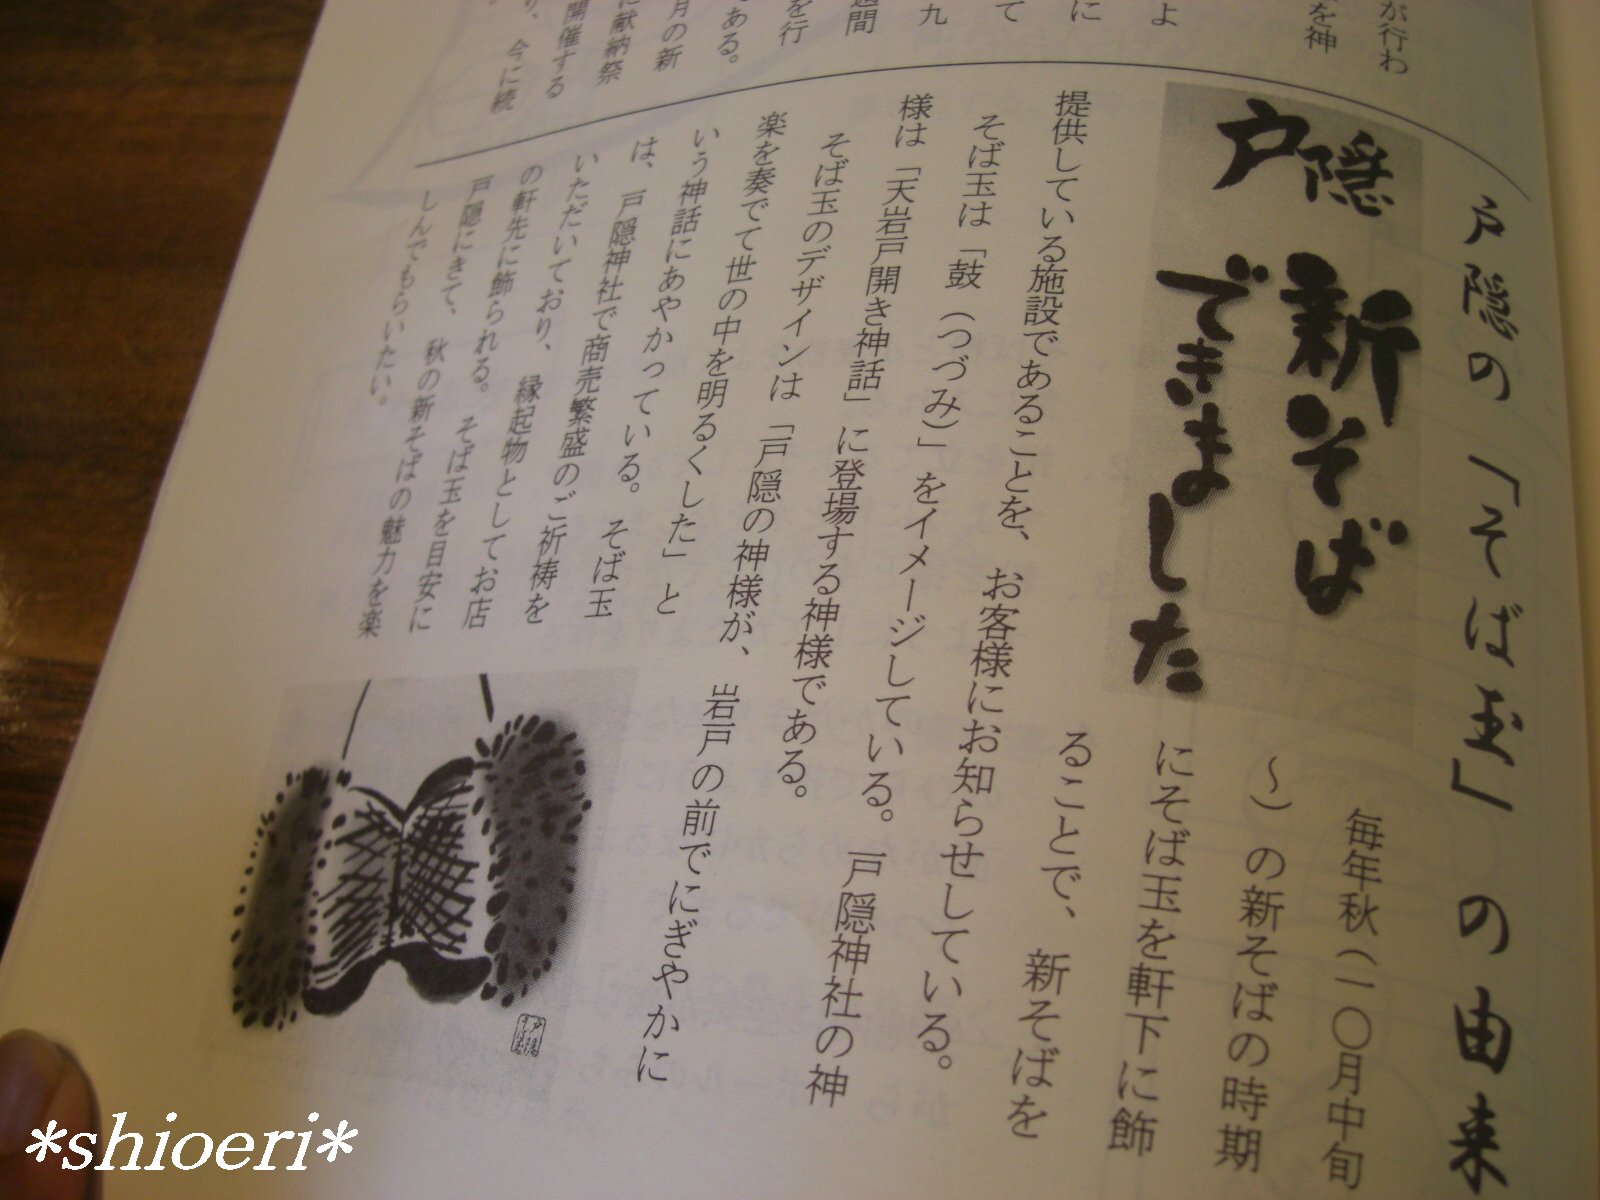 が行わ
を神
よ
に
て
九
週間
を行
ある。
月の新
に献納祭
開催する
り、今に続
戸隠の「そば玉」の由来
戸隠
新そば
できました
毎年秋(一〇月中旬
〜)の新そばの時期
にそば玉を軒下に飾
ることで、新そばを
提供している施設であることを、お客様にお知らせしている。
そば玉は「鼓(つづみ)」をイメージしている。戸隠神社の神
様は「天岩戸開き神話」に登場する神様である。
そば玉のデザインは「戸隠の神様が、岩戸の前でにぎやかに
楽を奏でて世の中を明るくした」と
いう神話にあやかっている。そば玉
は、戸隠神社で商売繁盛のご祈祷を
いただいており、縁起物としてお店
の軒先に飾られる。そば玉を目安に
戸隠にきて、秋の新そばの魅力を楽
しんでもらいたい。
*shioeri*